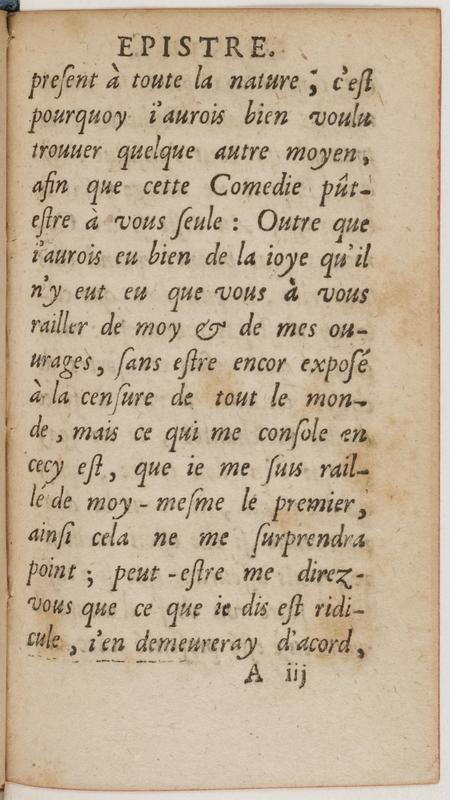 EPISTRE.
preſent à toute la nature ; c'eſt
pourquoy i'aurois bien voulu
trouuer quelque autre moyen,
afin que cette Comedie pût-
eſtre à vous ſeule : Outre que
i'aurois eu bien de la ioye qu'il
n'y eut eu que vous à vous
railler de moy & de mes ou-
urages, ſans eſtre encor expoſé
à la cenſure de tout le mon-
de, mais ce qui me conſole en
cecy eſt, que ie me ſuis rail-
lé de moy-meſme le premier,
ainſi cela ne me ſurprendra
point ; peut-eſtre me direz-
vous que ce que ie dis eſt ridi-
cule, i'en demeureray d'acord,
A iij